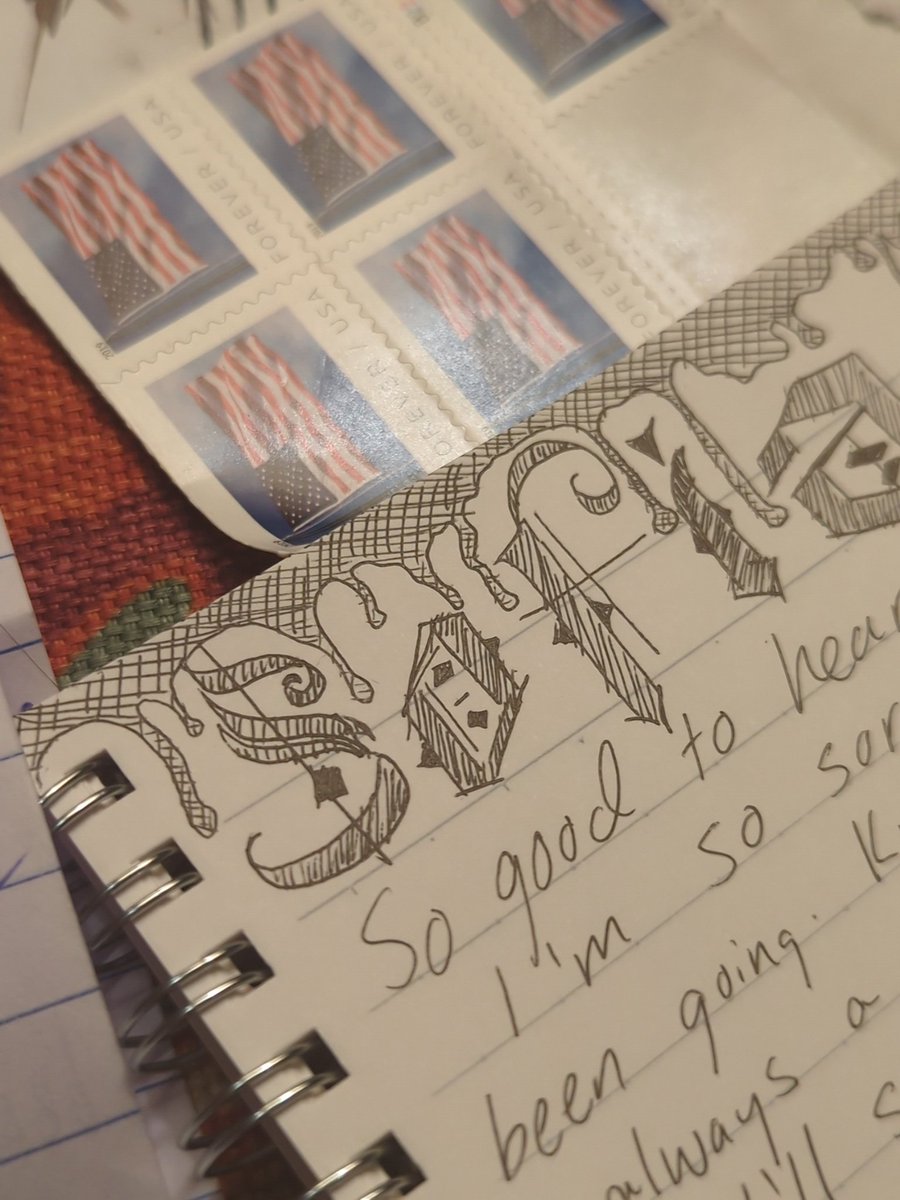 FOREVER / USA
FOREVER / USA
FOREVER / USA
FOREVER / USA
2019
Sofie
So good to hear
I'm so sor
been going. K
always a
I'll s